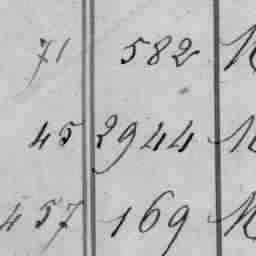 71 582
45 2944
457 169